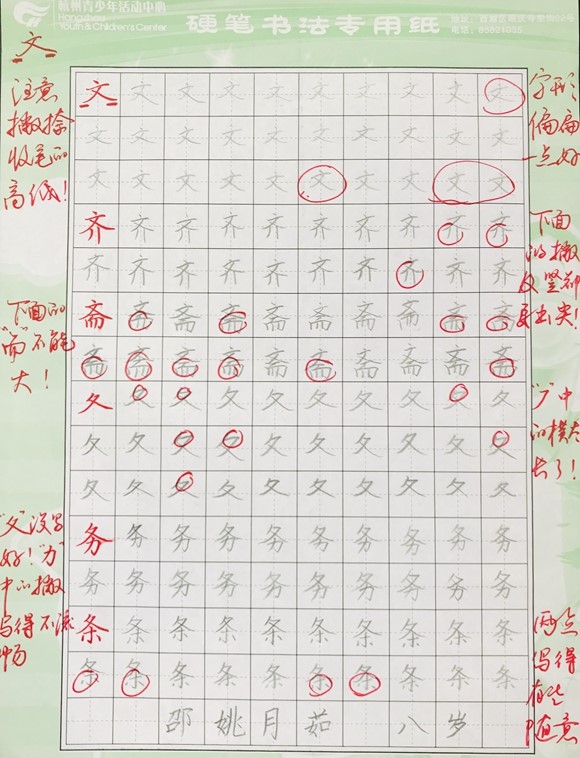 杭州青少年活动中心
Hangzhou
Youth & Children's Center
硬笔书法专用纸
文
注意
撇捺
收笔的
高低!
文文文文文文文文文文
文文文文文文文文文文
文文文文文文文文文文
字形
偏扁
一点好
齐齐齐齐齐齐齐齐齐齐
齐齐齐齐齐齐齐齐齐齐
下面
的撇
及竖都
要出尖!
下面的
"而"不能
大!
斋斋斋斋斋斋斋斋斋斋
斋斋斋斋斋斋斋斋斋斋
夂夂夂夂夂夂夂夂夂夂
夂夂夂夂夂夂夂夂夂夂
夂夂夂夂夂夂夂夂夂夂
中
的横太
长了!
"夂"没写
好!"力"
中的撇
写得不流
畅
务务务务务务务务务务
务务务务务务务务务务
条条条条条条条条条条
条条条条条条条条条条
两点
写得
有些
随意
邵姚月茹 八岁